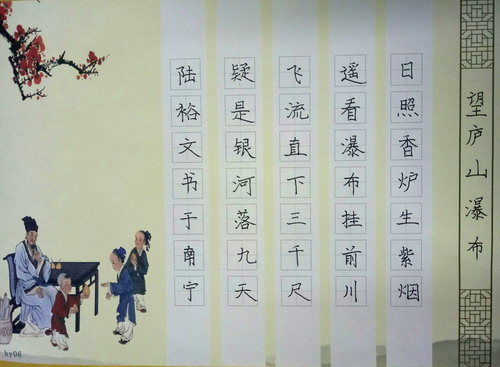 望庐山瀑布
日照香炉生紫烟
遥看瀑布挂前川
飞流直下三千尺
疑是银河落九天
陆裕文书于南宁
hy06